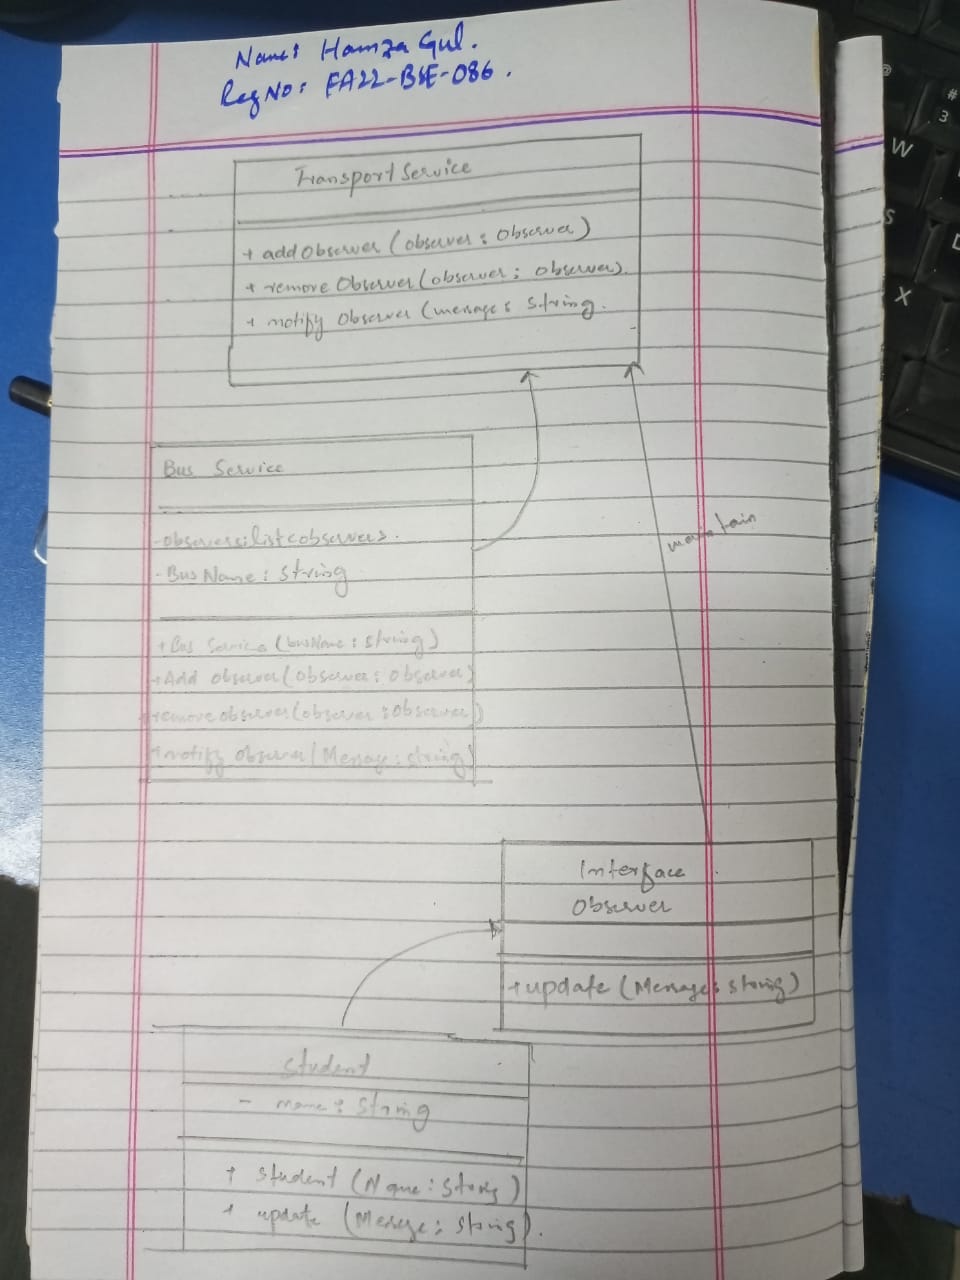 Name: Hamza Gul.
Reg No: FA22-BSE-086.
Transport Service
+ add Observer (observer : Observer)
+ remove Observer (observer ; observer).
+ notify Observer (message : String.
Bus Service
- observers:list<observers>.
- Bus Name : String
+ Bus Service (busName : String)
+ Add observer (observer : observer)
+ remove observer (observer : observer)
+ notify observer (Message : string)
maintain
Interface
Observer
+ update (Message : string)
Student
- name : String
+ student (Name : String)
+ update (Message : string).
@
#
3
W
S
X